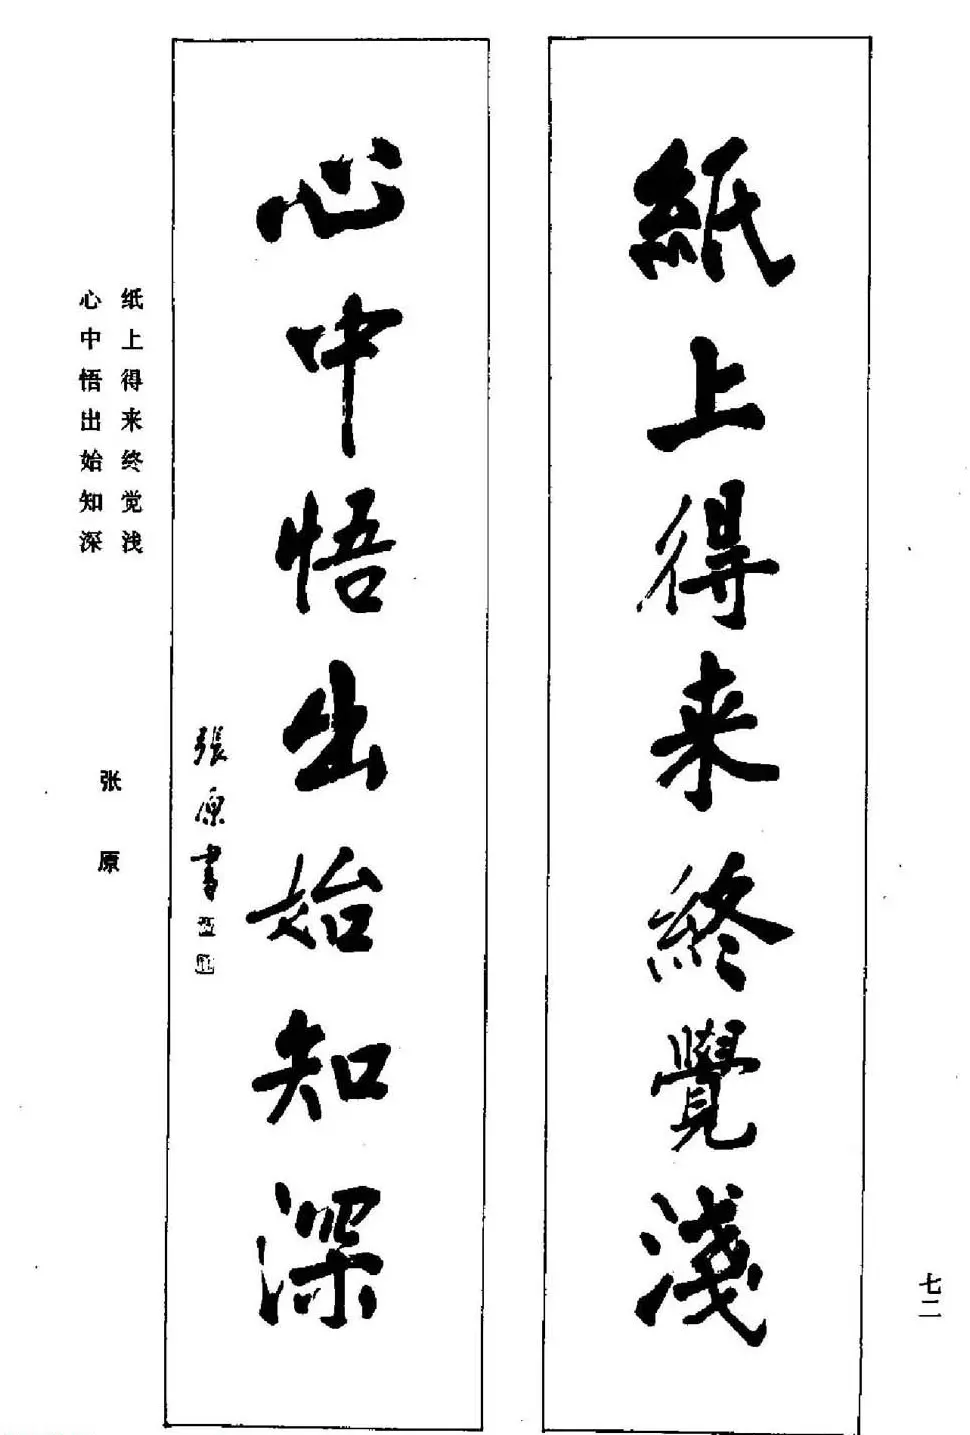 紙上得来終覺淺
心中悟出始知深
張原書
纸上得来终觉浅
心中悟出始知深
张原
七二